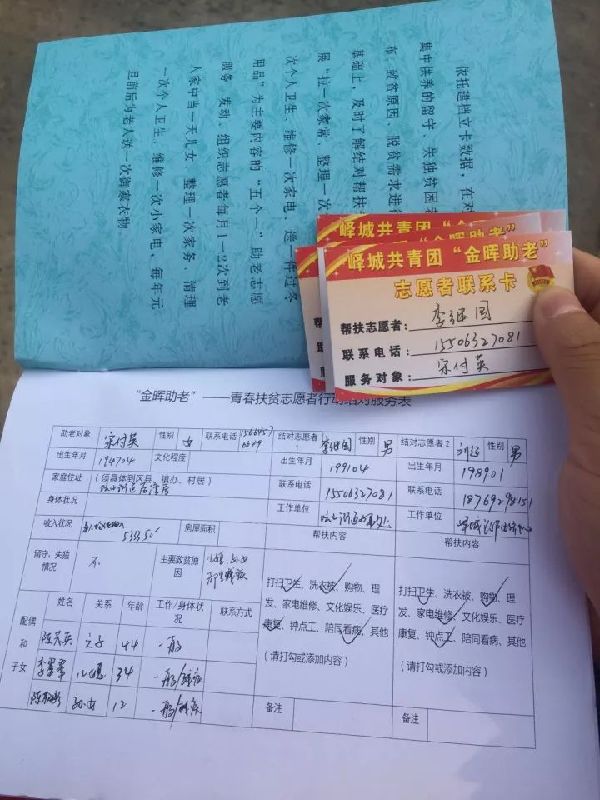 依托建档立卡数据，在对
集中供养的留守、失独贫困老
布、致贫原因、脱贫需求进行
基础上，及时了解结对帮扶
展“拉一次家常、整理一次
次个人卫生、维修一次家电、送一件过冬
用品”为主要内容的“五个一”助老志愿
服务，发动、组织志愿者每月1-2次到老
人家中当一天儿女，整理一次家务、清理
一次个人卫生、维修一次小家电，每年元
旦前后为老人送一次御寒衣物
峄城共青团“金晖助老”
峄城共青团“金晖助老”
志愿者联系卡
帮扶志愿者：李继国
联系电话：15506327081
服务对象：宋付英
“金晖助老”——青春扶贫志愿者行动结对服务表
助老对象 宋付英 性别 女 联系电话 结对志愿者1 李继国 性别 男 结对志愿者2 性别 男
出生年月 194704 文化程度 出生年月 199104 出生年月 198901
家庭住址 （须具体到区县、镇办、村居） 联系电话 15506327081 联系电话
身体状况 工作单位 工作单位
收入状况 房屋面积 帮扶内容 帮扶内容
留守、失独情况 不 主要致贫原因
打扫卫生、洗衣被、购物、理
发、家电维修、文化娱乐、医疗
康复、钟点工、陪同看病、其他
（请打勾或添加内容）
打扫卫生、洗衣被、购物、理
发、家电维修、文化娱乐、医疗
康复、钟点工、陪同看病、其他
（请打勾或添加内容）
配偶和子女 姓名 关系 年龄 工作/身体状况 联系方式
44 一般
34 一般
孙女 12 一般
备注 备注